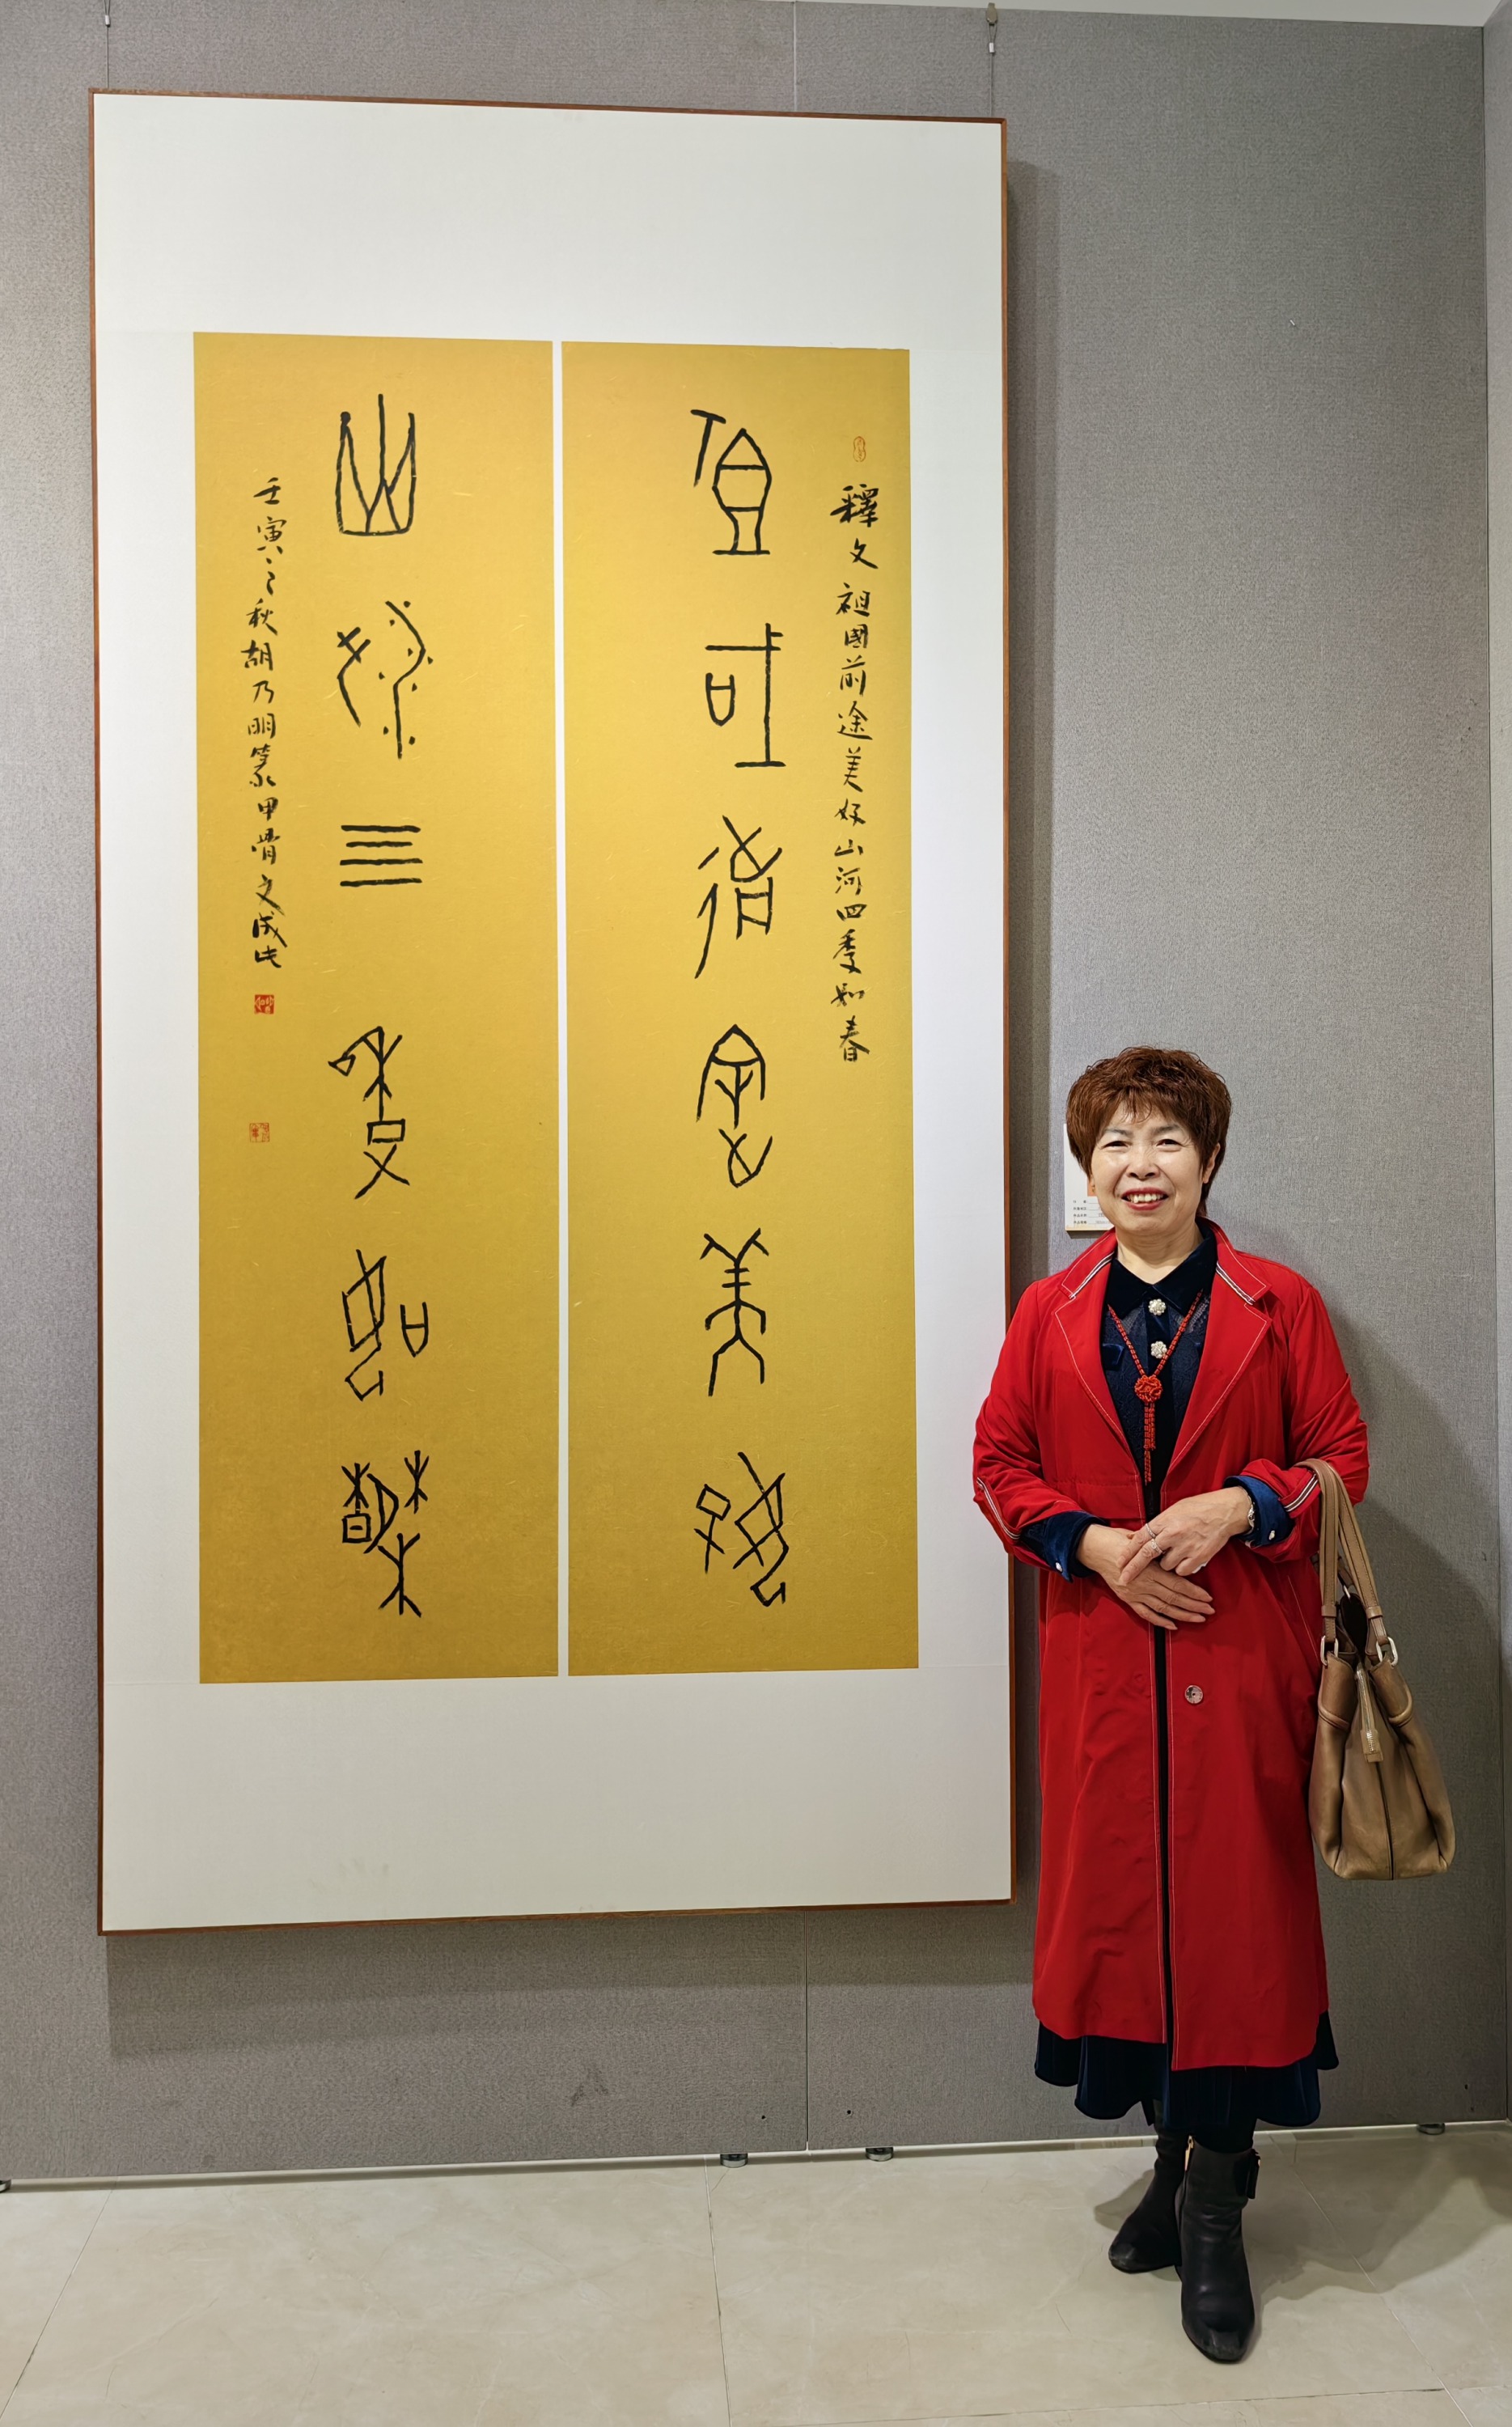 釋文祖國前途美好山河四季如春
祖國前途美好
山河四季如春
壬寅之秋胡乃明篆甲骨文成此